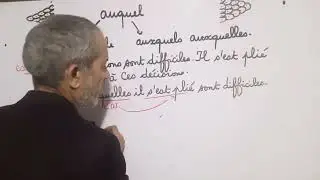 auquel
auxquels auxquelles.
sont difficiles. Il s'est plié
à ces décisions.
quelles il s'est plié sont difficiles.